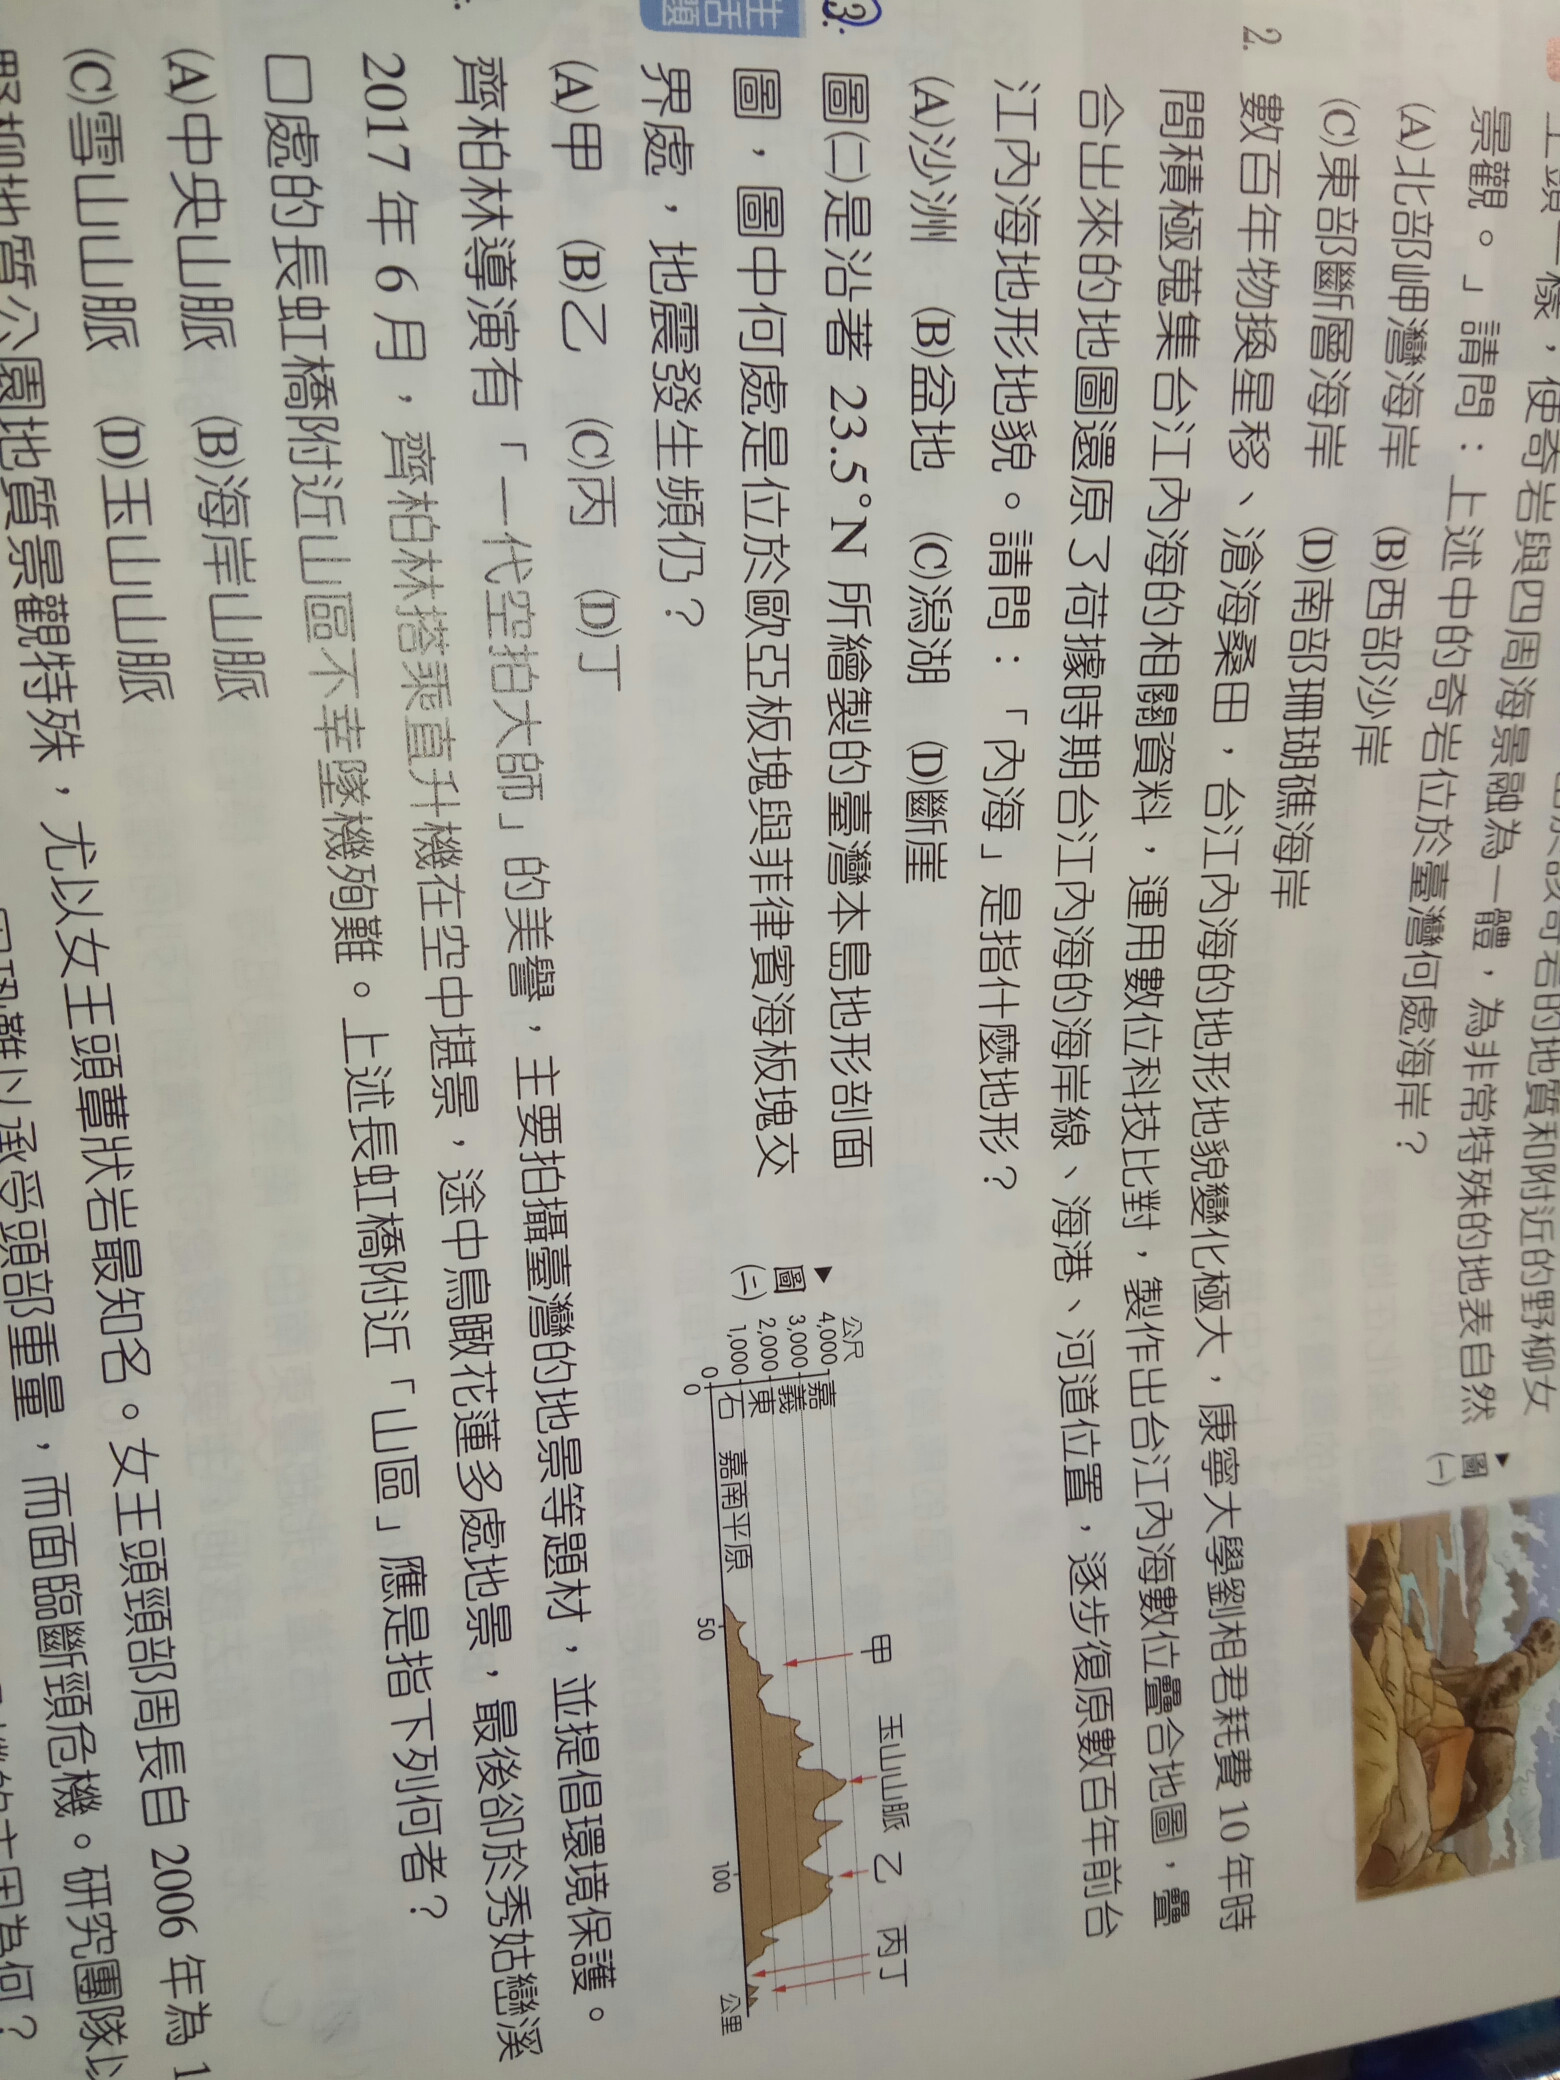 景觀。」請問：上述中的奇岩位於臺灣何處海岸？
(A)北部岬灣海岸　(B)西部沙岸
(C)東部斷層海岸　(D)南部珊瑚礁海岸
▲圖(一)
2. 數百年物換星移、滄海桑田，台江內海的地形地貌變化極大，康寧大學劉相君耗費 10 年時
間積極蒐集台江內海的相關資料，運用數位科技比對，製作出台江內海數位疊合地圖，疊
合出來的地圖還原了荷據時期台江內海的海岸線、海港、河道位置，逐步復原數百年前台
江內海地形地貌。請問：「內海」是指什麼地形？
(A)沙洲　(B)盆地　(C)潟湖　(D)斷崖
3. 圖(二)是沿著 23.5°N 所繪製的臺灣本島地形剖面
圖，圖中何處是位於歐亞板塊與菲律賓海板塊交
界處，地震發生頻仍？
(A)甲　(B)乙　(C)丙　(D)丁
▲圖(二)
公尺
4,000
3,000
2,000
1,000
0
嘉義東石
嘉南平原
甲
玉山山脈
乙
丙丁
0
50
100
公里
齊柏林導演有「一代空拍大師」的美譽，主要拍攝臺灣的地景等題材，並提倡環境保護。
2017 年 6 月，齊柏林搭乘直升機在空中堪景，途中鳥瞰花蓮多處地景，最後卻於秀姑巒溪
口處的長虹橋附近山區不幸墜機殉難。上述長虹橋附近「山區」應是指下列何者？
(A)中央山脈　(B)海岸山脈
(C)雪山山脈　(D)玉山山脈
野柳地質公園地質景觀特殊，尤以女王頭蕈狀岩最知名。女王頭頸部周長自 2006 年為 1
承受頭部重量，而面臨斷頸危機。研究團隊以